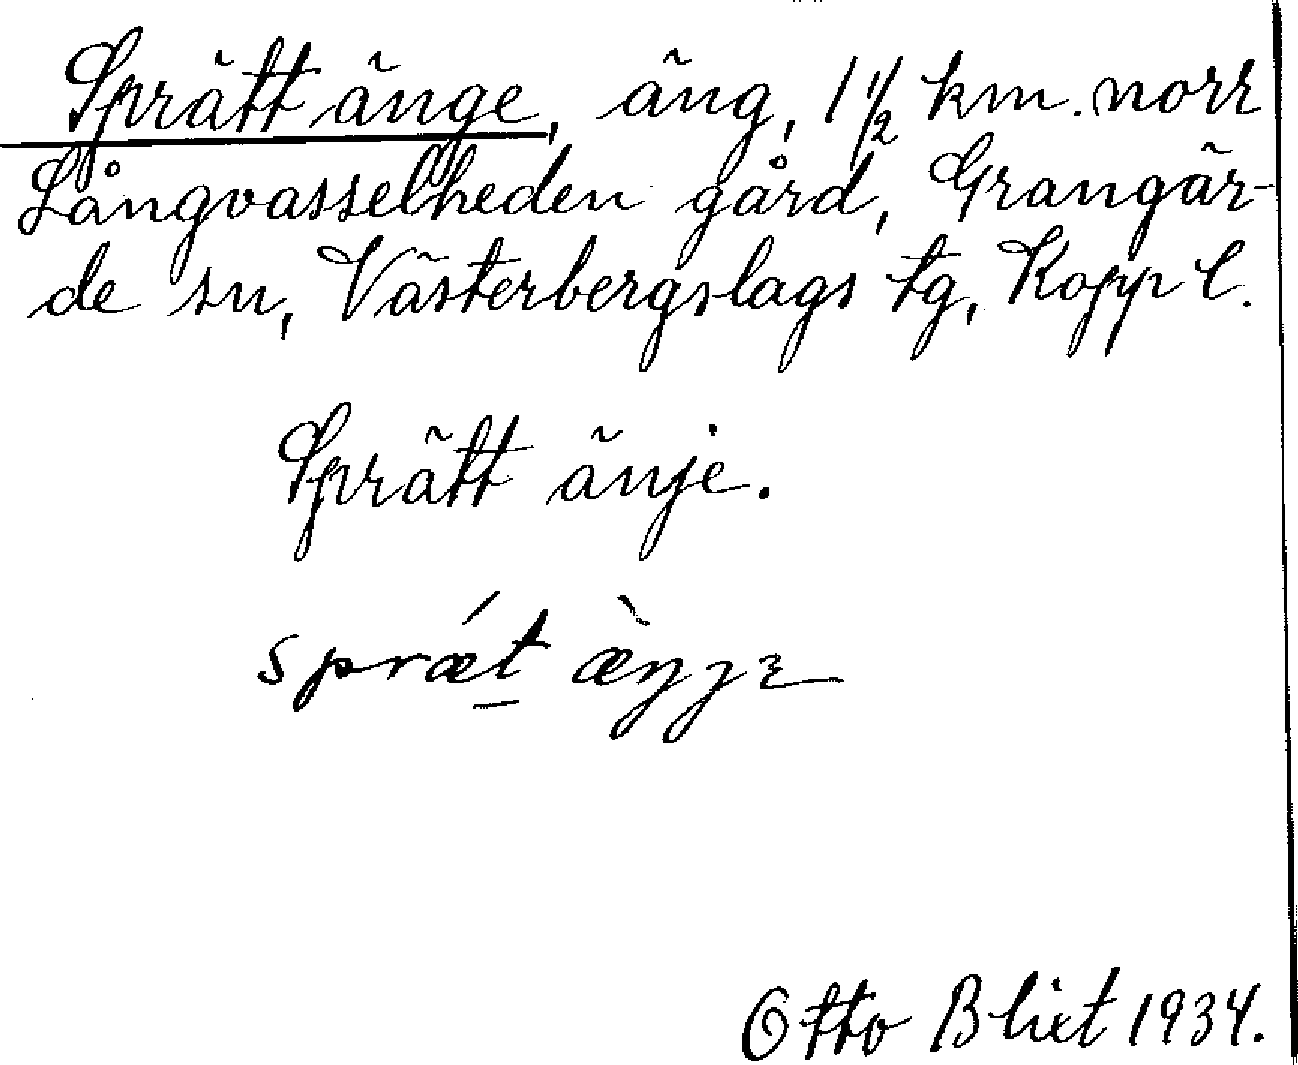 Sprätt änge, äng, 1 1/2 km. norr
Långvasselheden gård, Grangär-
de sn, Västerbergslags tg, Kopp l.
Sprätt änje.
sprǽt æ̀ŋjɛ
Otto Blixt 1934.